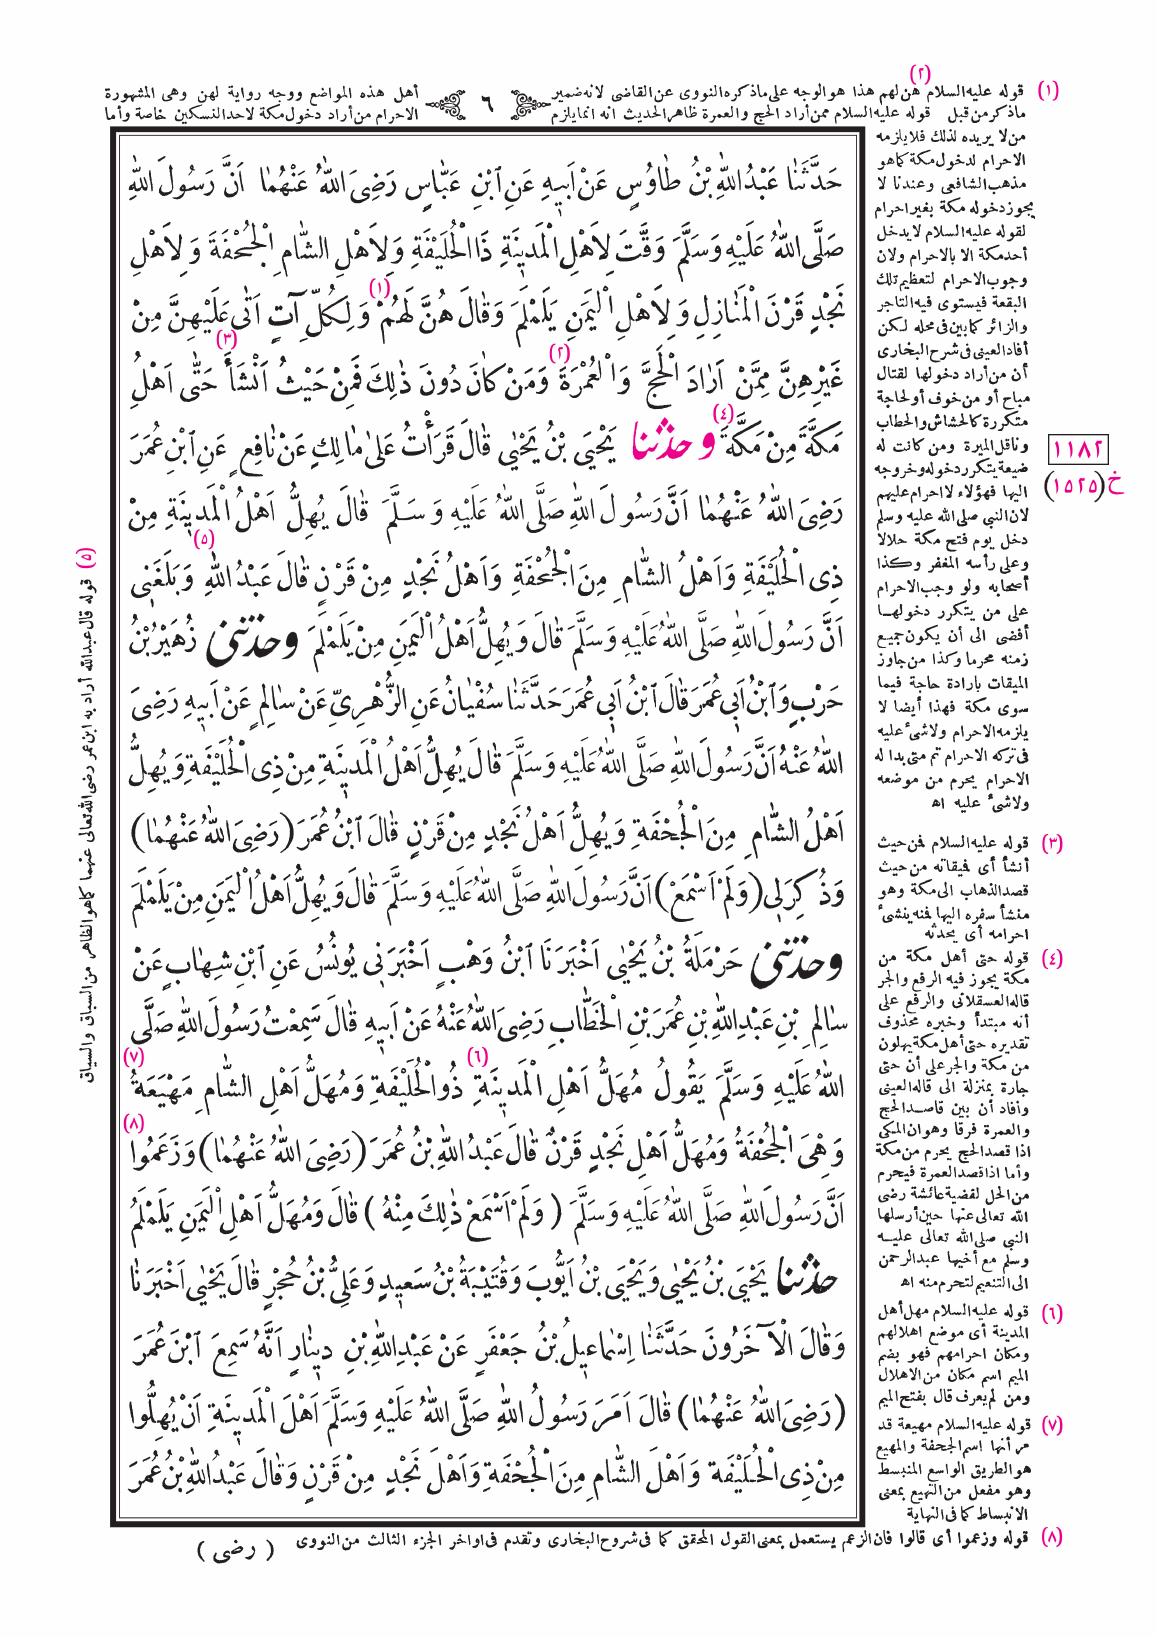 ٦
(١) قوله عليه السلام هن لهم هذا هو الوجه على ماذكره النووى عن القاضى لانه ضمير
(٢)
أهل هذه المواضع ووجه رواية لهن وهى المشهورة
ماذكر من قبل قوله عليه السلام ممن أراد الحج والعمرة ظاهر الحديث انه انما يلزم
الاحرام من أراد دخول مكة لاحد النسكين خاصة وأما
من لا يريده لذلك فلا يلزمه
الاحرام لدخول مكة كما هو
مذهب الشافعى وعندنا لا
يجوز دخوله مكة بغير احرام
لقوله عليه السلام لا يدخل
أحد مكة الا بالاحرام ولان
وجوب الاحرام لتعظيم تلك
البقعة فيستوى فيه التاجر
والزائر كما بين فى محله لكن
أفاد العينى فى شرح البخارى
أن من أراد دخولها لقتال
مباح أو من خوف أو لحاجة
متكررة كالحشاش والحطاب
وناقل الميرة ومن كانت له
ضيعة يتكرر دخوله وخروجه
اليها فهؤلاء لا احرام عليهم
لان النبي صلى الله عليه وسلم
دخل يوم فتح مكة حلالا
وعلى رأسه المغفر وكذا
أصحابه ولو وجب الاحرام
على من يتكرر دخولها
أفضى الى أن يكون جميع
زمنه محرما وكذا من جاوز
الميقات بارادة حاجة فيما
سوى مكة فهذا أيضا لا
يلزمه الاحرام ولا شئ عليه
فى تركه الاحرام ثم متى بدا له
الاحرام يحرم من موضعه
ولا شئ عليه اه
(٣) قوله عليه السلام فمن حيث
أنشأ أى فيقاته من حيث
قصد الذهاب الى مكة وهو
منشأ سفره اليها فمنه ينشئ
احرامه أى يحدثه
(٤) قوله حتى أهل مكة من
مكة يجوز فيه الرفع والجر
قاله العسقلانى والرفع على
أنه مبتدأ وخبره محذوف
تقديره حتى أهل مكة يهلون
من مكة والجر على أن حتى
جارة بمنزلة الى قاله العينى
وأفاد أن بين قاصد الحج
والعمرة فرقا وهو ان المكى
اذا قصد الحج يحرم من مكة
وأما اذا قصد العمرة فيحرم
من الحل لقضية عائشة رضى
الله تعالى عنها حين أرسلها
النبى صلى الله تعالى عليه
وسلم مع أخيها عبد الرحمن
الى التنعيم لتحرم منه اه
(٦) قوله عليه السلام مهل أهل
المدينة أى موضع اهلالهم
ومكان احرامهم فهو بضم
الميم اسم مكان من الاهلال
ومن لم يعرف قال بفتح الميم
(٧) قوله عليه السلام مهيعة قد
مر أنها اسم الجحفة والمهيع
هو الطريق الواسع المنبسط
وهو مفعل من التهيع بمعنى
الانبساط كما فى النهاية
(٨) قوله وزعموا أى قالوا فان الزعم يستعمل بمعنى القول المحقق كما فى شروح البخارى وتقدم فى اواخر الجزء الثالث من النووى
١١٨٢
خ (١٥٢٥)
حَدَّثَنَا عَبْدُ اللهِ بْنُ طَاوُسٍ عَنْ اَبِيهِ عَنِ ابْنِ عَبَّاسٍ رَضِىَ اللهُ عَنْهُمَا اَنَّ رَسُولَ اللهِ
صَلَّى اللهُ عَلَيْهِ وَسَلَّمَ وَقَّتَ لِاَهْلِ الْمَدِينَةِ ذَا الْحُلَيْفَةِ وَلِاَهْلِ الشَّامِ الْجُحْفَةَ وَلِاَهْلِ
نَجْدٍ قَرْنَ الْمَنَازِلِ وَلِاَهْلِ الْيَمَنِ يَلَمْلَمَ وَقَالَ هُنَّ لَهُمْ (١) وَلِكُلِّ آتٍ اَتَى عَلَيْهِنَّ مِنْ
غَيْرِهِنَّ مِمَّنْ اَرَادَ الْحَجَّ وَالْعُمْرَةَ (٢) وَمَنْ كَانَ دُونَ ذٰلِكَ فَمِنْ حَيْثُ اَنْشَأَ (٣) حَتَّى اَهْلُ
مَكَّةَ مِنْ مَكَّةَ (٤) وحدثنا يَحْيَى بْنُ يَحْيٰى قَالَ قَرَأْتُ عَلَى مَالِكٍ عَنْ نَافِعٍ عَنِ ابْنِ عُمَرَ
رَضِىَ اللهُ عَنْهُمَا اَنَّ رَسُولَ اللهِ صَلَّى اللهُ عَلَيْهِ وَسَلَّمَ قَالَ يُهِلُّ اَهْلُ الْمَدِينَةِ مِنْ
ذِى الْحُلَيْفَةِ وَاَهْلُ الشَّامِ مِنَ الْجُحْفَةِ وَاَهْلُ نَجْدٍ مِنْ قَرْنٍ قَالَ عَبْدُ اللهِ (٥) وَبَلَغَنِى
اَنَّ رَسُولَ اللهِ صَلَّى اللهُ عَلَيْهِ وَسَلَّمَ قَالَ وَيُهِلُّ اَهْلُ الْيَمَنِ مِنْ يَلَمْلَمَ وحدثنى زُهَيْرُ بْنُ
حَرْبٍ وَابْنُ اَبِى عُمَرَ قَالَ ابْنُ اَبِى عُمَرَ حَدَّثَنَا سُفْيَانُ عَنِ الزُّهْرِىِّ عَنْ سَالِمٍ عَنْ اَبِيهِ رَضِىَ
اللهُ عَنْهُ اَنَّ رَسُولَ اللهِ صَلَّى اللهُ عَلَيْهِ وَسَلَّمَ قَالَ يُهِلُّ اَهْلُ الْمَدِينَةِ مِنْ ذِى الْحُلَيْفَةِ وَيُهِلُّ
اَهْلُ الشَّامِ مِنَ الْجُحْفَةِ وَيُهِلُّ اَهْلُ نَجْدٍ مِنْ قَرْنٍ قَالَ ابْنُ عُمَرَ (رَضِىَ اللهُ عَنْهُمَا)
وَذُكِرَ لِى (وَلَمْ اَسْمَعْ) اَنَّ رَسُولَ اللهِ صَلَّى اللهُ عَلَيْهِ وَسَلَّمَ قَالَ وَيُهِلُّ اَهْلُ الْيَمَنِ مِنْ يَلَمْلَمَ
وحدثنى حَرْمَلَةُ بْنُ يَحْيٰى اَخْبَرَنَا ابْنُ وَهْبٍ اَخْبَرَنِى يُونُسُ عَنِ ابْنِ شِهَابٍ عَنْ
سَالِمِ بْنِ عَبْدِ اللهِ بْنِ عُمَرَ بْنِ الْخَطَّابِ رَضِىَ اللهُ عَنْهُ عَنْ اَبِيهِ قَالَ سَمِعْتُ رَسُولَ اللهِ صَلَّى
اللهُ عَلَيْهِ وَسَلَّمَ يَقُولُ مُهَلُّ اَهْلِ الْمَدِينَةِ (٦) ذُو الْحُلَيْفَةِ وَمُهَلُّ اَهْلِ الشَّامِ مَهْيَعَةُ (٧)
وَهِىَ الْجُحْفَةُ وَمُهَلُّ اَهْلِ نَجْدٍ قَرْنٌ قَالَ عَبْدُ اللهِ بْنُ عُمَرَ (رَضِىَ اللهُ عَنْهُمَا) وَزَعَمُوا (٨)
اَنَّ رَسُولَ اللهِ صَلَّى اللهُ عَلَيْهِ وَسَلَّمَ (وَلَمْ اَسْمَعْ ذٰلِكَ مِنْهُ) قَالَ وَمُهَلُّ اَهْلِ الْيَمَنِ يَلَمْلَمُ
حدثنا يَحْيَى بْنُ يَحْيٰى وَيَحْيَى بْنُ اَيُّوبَ وَقُتَيْبَةُ بْنُ سَعِيدٍ وَعَلِىُّ بْنُ حُجْرٍ قَالَ يَحْيٰى اَخْبَرَنَا
وَقَالَ الْآخَرُونَ حَدَّثَنَا اِسْمَاعِيلُ بْنُ جَعْفَرٍ عَنْ عَبْدِ اللهِ بْنِ دِينَارٍ اَنَّهُ سَمِعَ ابْنَ عُمَرَ
(رَضِىَ اللهُ عَنْهُمَا) قَالَ اَمَرَ رَسُولُ اللهِ صَلَّى اللهُ عَلَيْهِ وَسَلَّمَ اَهْلَ الْمَدِينَةِ اَنْ يُهِلُّوا
مِنْ ذِى الْحُلَيْفَةِ وَاَهْلَ الشَّامِ مِنَ الْجُحْفَةِ وَاَهْلَ نَجْدٍ مِنْ قَرْنٍ وَقَالَ عَبْدُ اللهِ بْنُ عُمَرَ
( رضى )
(٥) قوله قال عبد الله أراد به ابن عمر رضى الله تعالى عنهما كما هو الظاهر من السباق والسياق